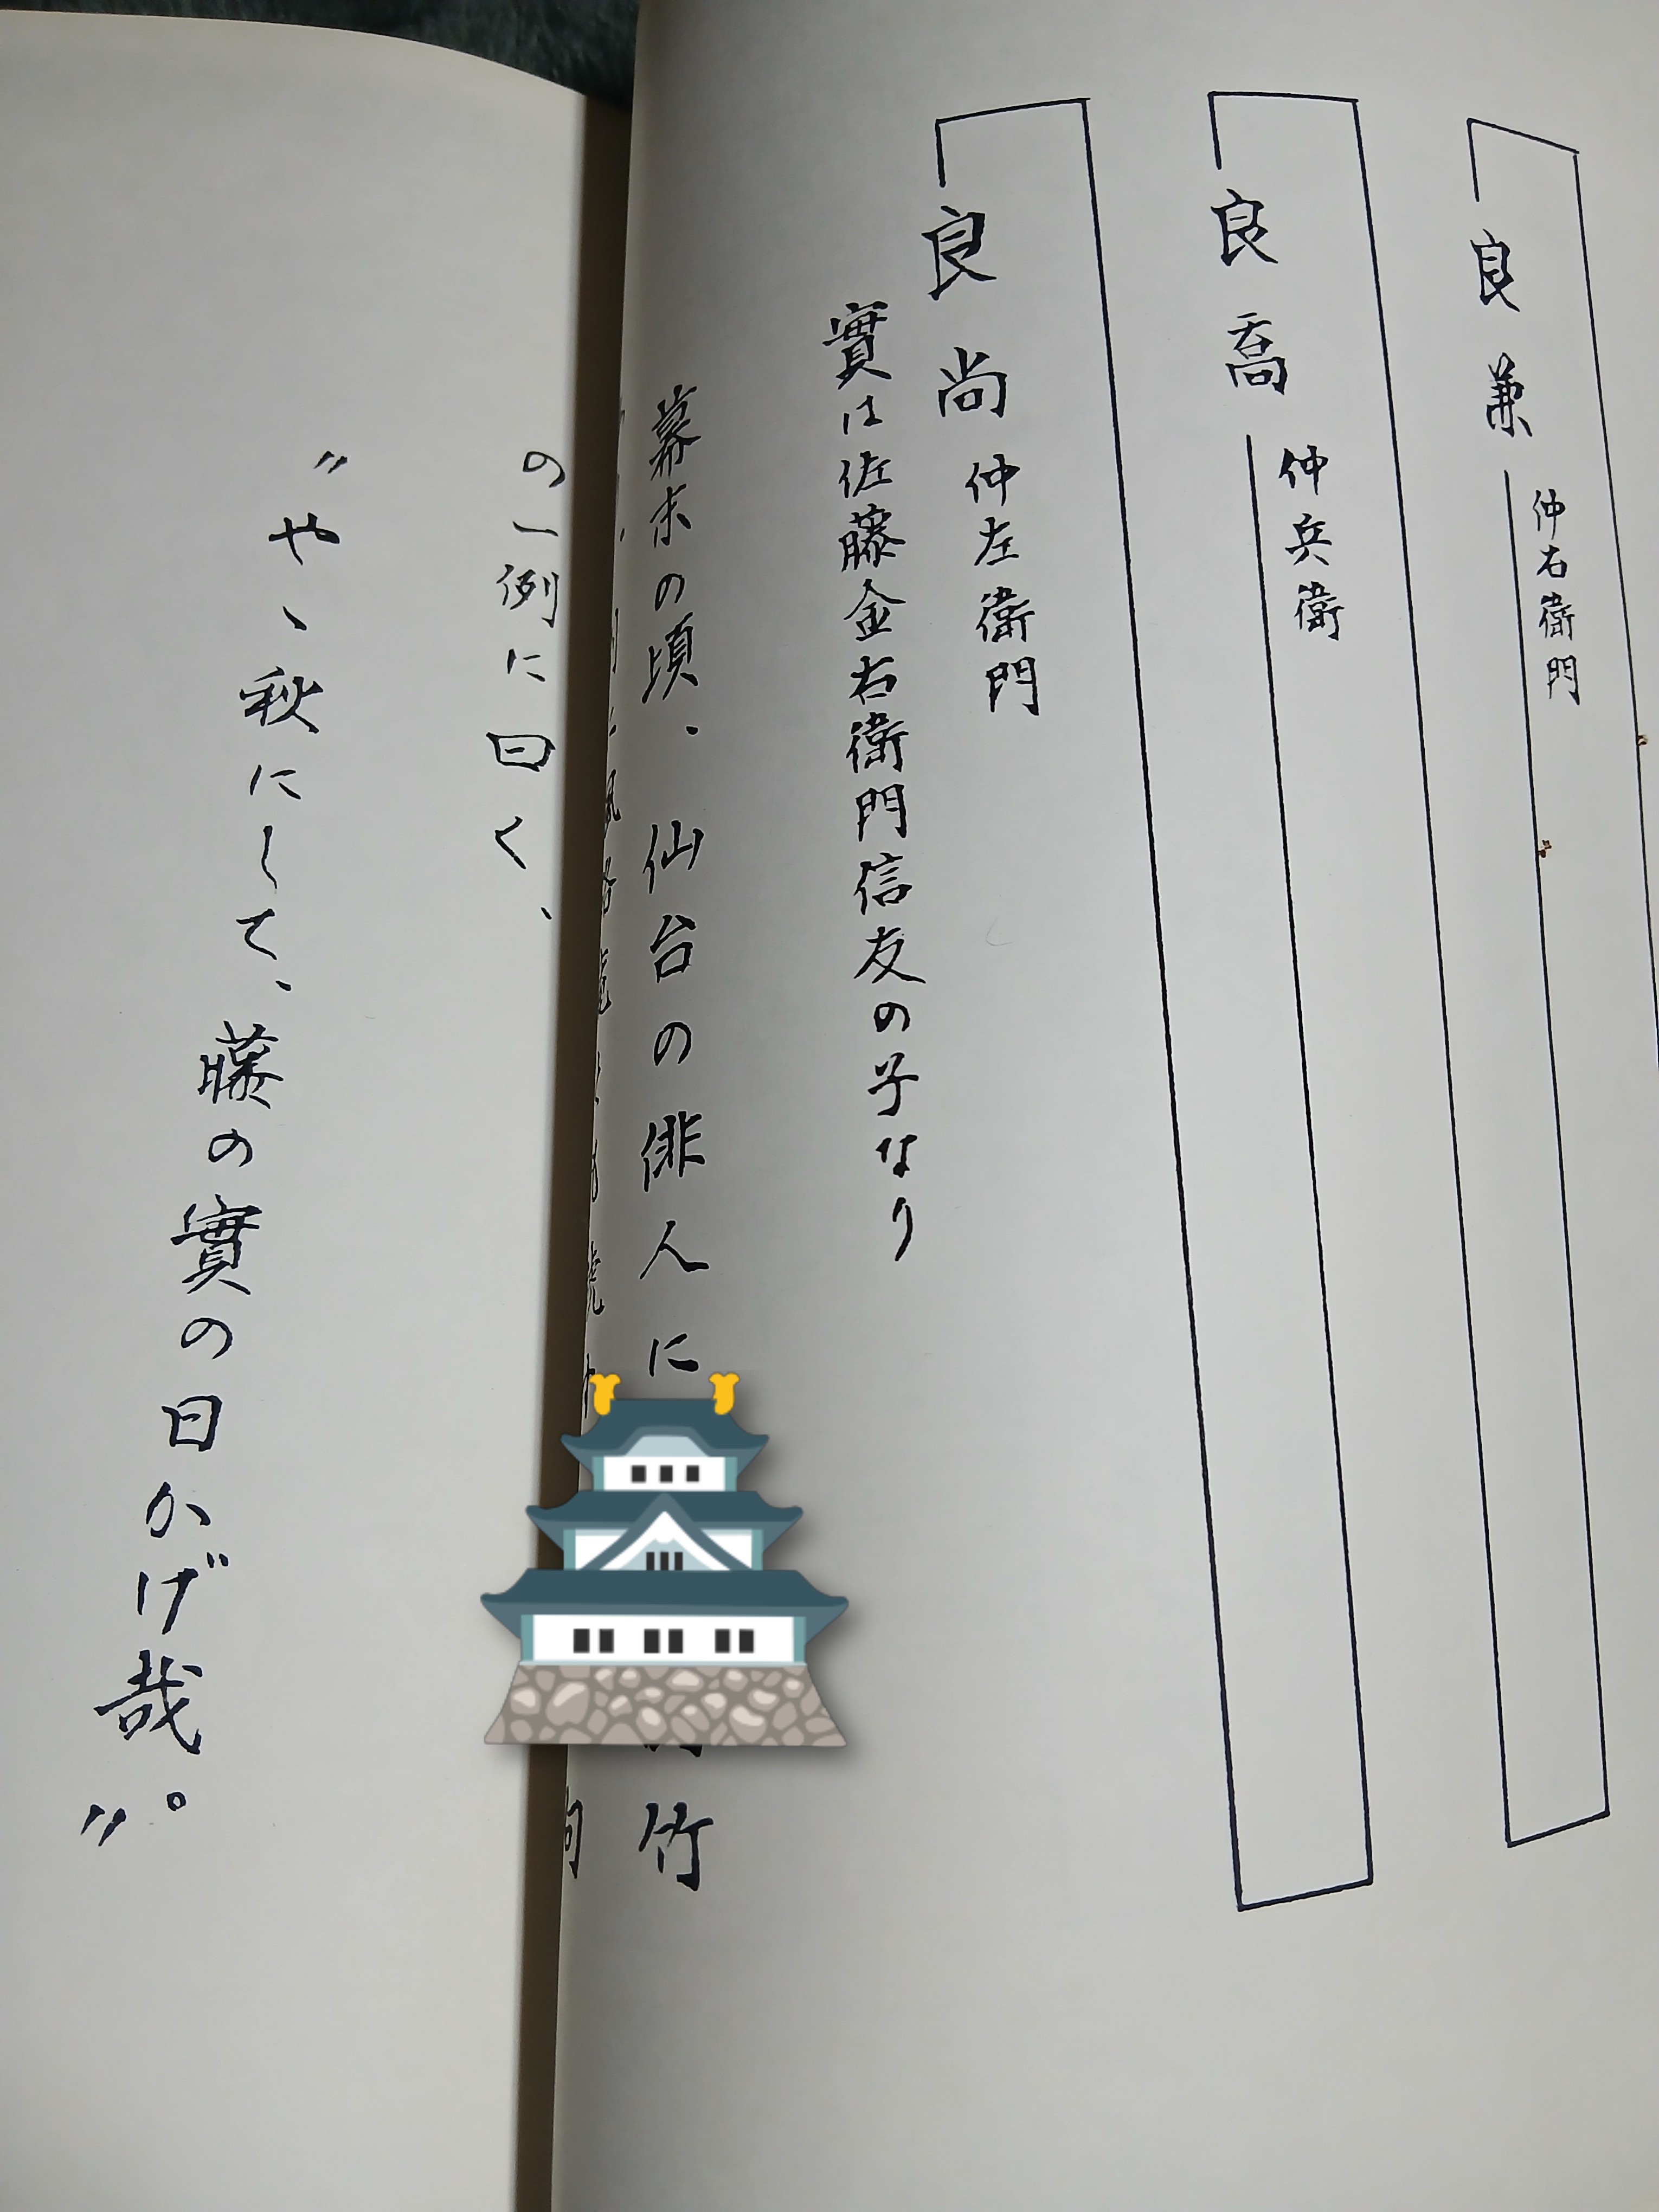 良兼 仲右衛門
良喬 仲兵衛
良尚 仲左衛門
實は佐藤金右衛門信友の子なり
幕末の頃、仙台の俳人に
竹
の一例に曰く、
〃やゝ秋にして、藤の實の日かげ哉。〃